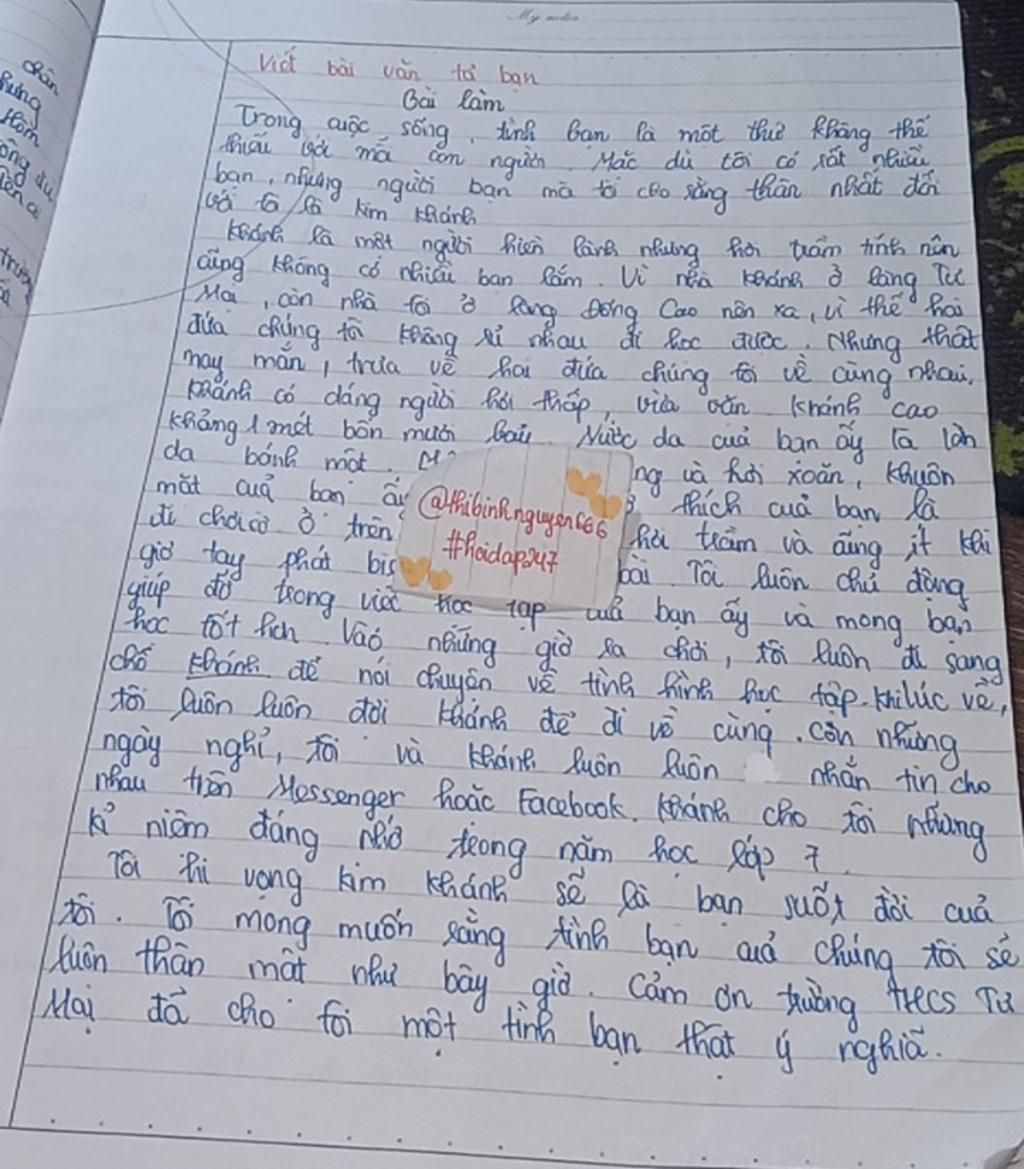 My notes
Viết bài văn tả bạn
Bài làm
Trong cuộc sống, tình bạn là một thứ không thể
thiếu với mỗi con người. Mặc dù tôi có rất nhiều
bạn, nhưng người bạn mà tôi cho rằng thân nhất đối
với tôi là Kim Khánh
Khánh là một người hiền lành nhưng hơi trầm tính nên
cũng không có nhiều bạn lắm. Vì nhà Khánh ở làng Tư
Mại, còn nhà tôi ở làng Đông Cao nên xa, vì thế hai
đứa chúng tôi không rủ nhau đi học được. Nhưng thật
may mắn, trưa về hai đứa chúng tôi về cùng nhau.
Khánh có dáng người hơi thấp, vừa vặn. Khánh cao
khoảng 1 mét bốn mươi bảy. Nước da của bạn ấy là làn
da bánh mật. ng và hơi xoăn, khuôn
mặt của bạn ấy thích của bạn là
đi chơi cờ ở trên hơi trầm và cũng ít khi
giơ tay phát bài. Tôi luôn chủ động
giúp đỡ trong việc học tập của bạn ấy và mong bạn
học tốt hơn. Vào những giờ ra chơi, tôi luôn đi sang
chỗ Khánh để nói chuyện về tình hình học tập. Khi lúc về,
tôi luôn luôn đợi Khánh để đi về cùng. Còn những
ngày nghỉ, tôi và Khánh luôn luôn nhắn tin cho
nhau trên Messenger hoặc Facebook. Khánh cho tôi những
kỉ niệm đáng nhớ trong năm học lớp 7.
Tôi hi vọng Kim Khánh sẽ là bạn suốt đời của
tôi. Tôi mong muốn rằng tình bạn của chúng tôi sẽ
luôn thân mật như bây giờ. Cảm ơn trường THCS Tư
Mại đã cho tôi một tình bạn thật ý nghĩa.
@thibinhnguyen666
#hoidap247